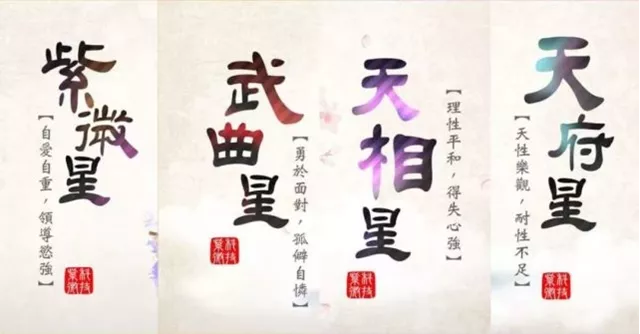 紫微星
【自愛自重，領導慾強】
科技紫微
武曲星
【勇於面對，孤僻自憐】
科技紫微
天相星
【理性平和，得失心強】
科技紫微
天府星
【天性樂觀，耐性不足】
科技紫微